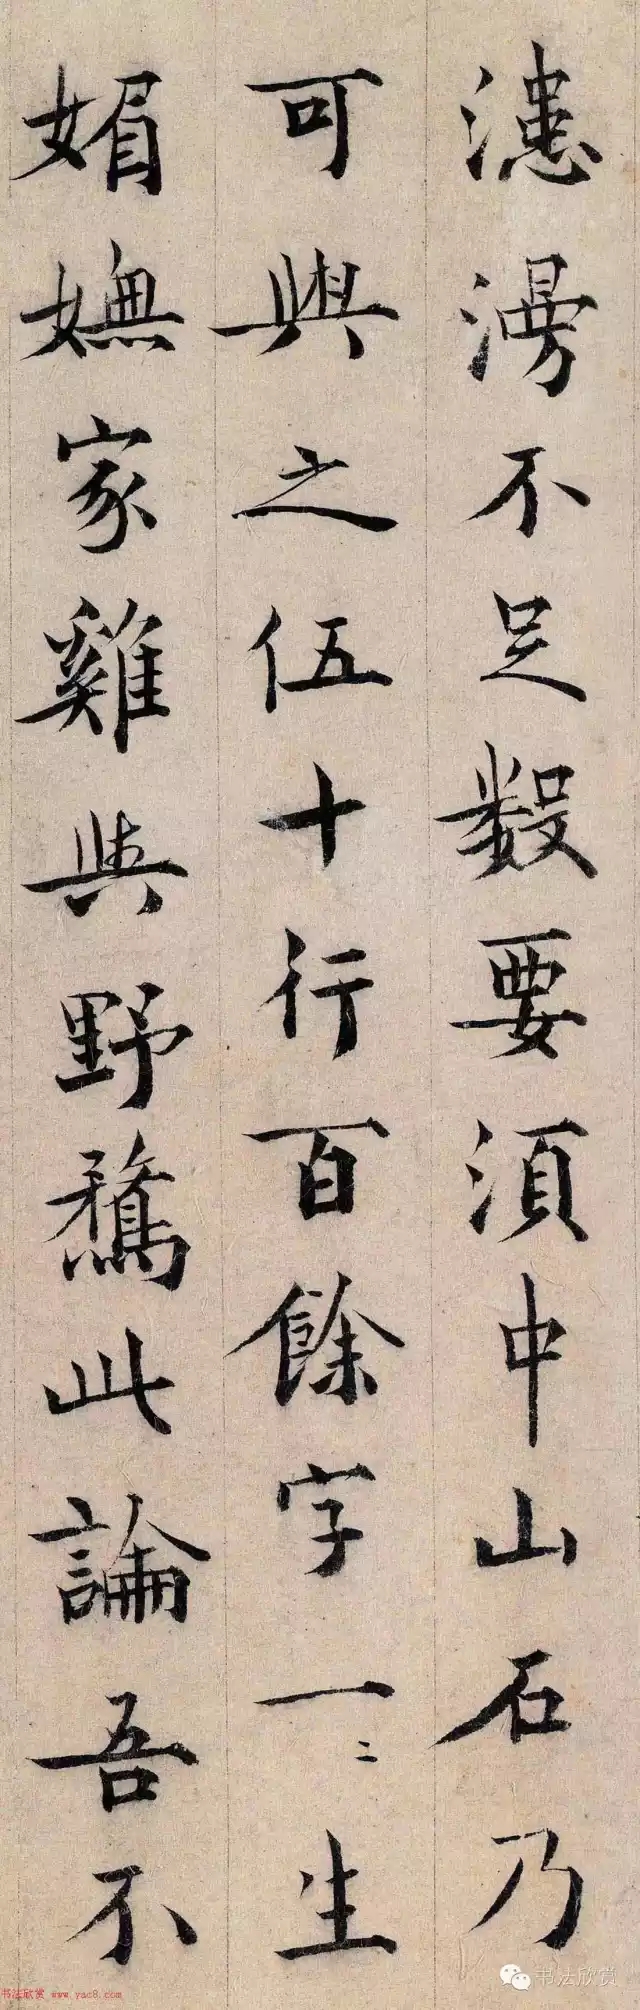 漶漫不足數要須中山石乃
可與之伍十行百餘字一二生
媚嫵家雞與野鶩此論吾不
书法欣赏
书法欣赏 www.yac8.com